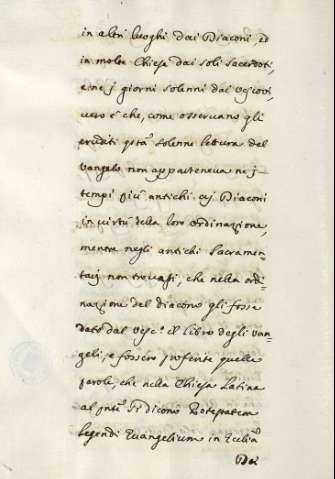 in altri luoghi dai Diaconi, ed
in molte Chiese dai soli Sacerdoti,
e ne j giorni solenni dai vescovi,
vero è che, come osservano gli
eruditi qsta solenne lettura del
vangelo non apparteneva ne j
tempi più antichi aj Diaconi
in virtù della loro ordinazione,
mentre negli antichi Sacramen=
tarj non trovasi, che nella ordi=
nazione del diacono gli fosse
dato dal vesc.o il libro degli van=
geli, e fossero proferite quelle
parole, che nella Chiesa Latina
al pnte si dicono Potestatem
legendi Evangelium in Ecclia
Dei